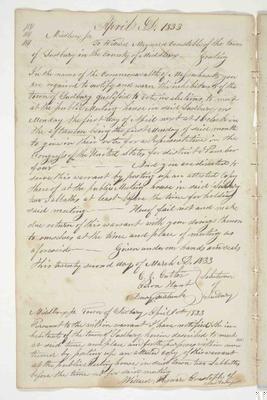 April D. 1833
Middlesex ss
To Maynard Constable of the town
of Sudbury in the County of Middlesex Greeting
In the name of the Commonwealth of Massachusetts you
are required to notify and warn the inhabitants of the
town of Sudbury qualified to vote in elections to meet
at the public Meeting house in said Sudbury on
Monday the first day of April next at o'clock in
the afternoon being the first Monday of said month
to give in their votes for a representative in the
Congress of the United States for district Number
four And you are directed to
serve this warrant by posting up an attested copy
thereof at the public Meeting house in said Sudbury
two Sabbaths at least before the time for holding
said meeting Hereof fail not and make
due return of this warrant with your doings thereon
to ourselves at the time and place of meeting as
aforesaid Given under our hands and seals
this twenty second day of March D. 1833
Selectmen
Hunt of
Sudbury
Middlesex ss Town of Sudbury April 1833
Pursuant to the within warrant I have notified the in-
habitants of the town of Sudbury herein described to meet
at said time and place and for the purpose within men-
tioned by posting up an attested copy of this warrant
at the public Meeting house in said town two Sabbaths
before the time set for said meeting
Constable of
Sudbury